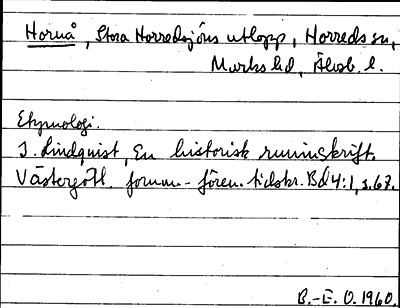 Hornå, Stora Horredsjöns utlopp, Horreds sn,
Marks hd, Älvsb. l.
Etymologi.
I. Lindquist, En historisk runinskrift.
Västergötl. fornm.-fören. tidskr. Bd 4:1, s. 67.
B.-E. O. 1960.